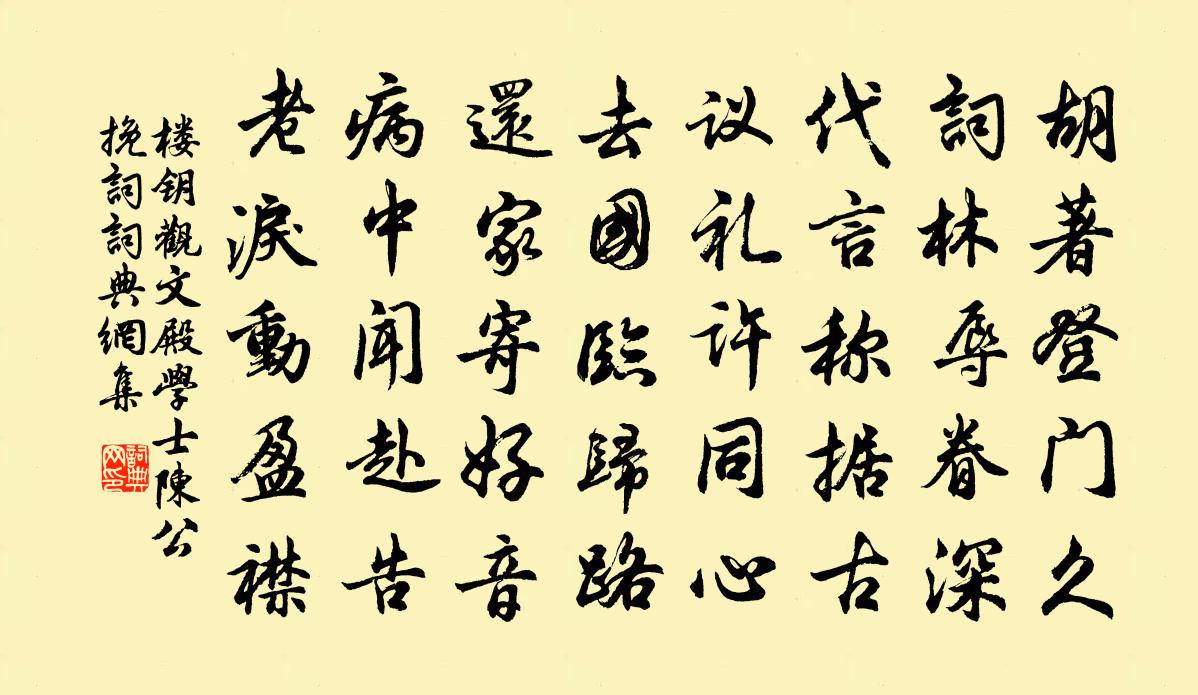 胡著登门久
詞林辱眷深
代言称据古
议礼许同心
去國臨歸路
還家寄好音
病中闻赴告
老淚動盈襟
楼钥觀文殿學士陳公
挽詞詞典網集
詞典
网印